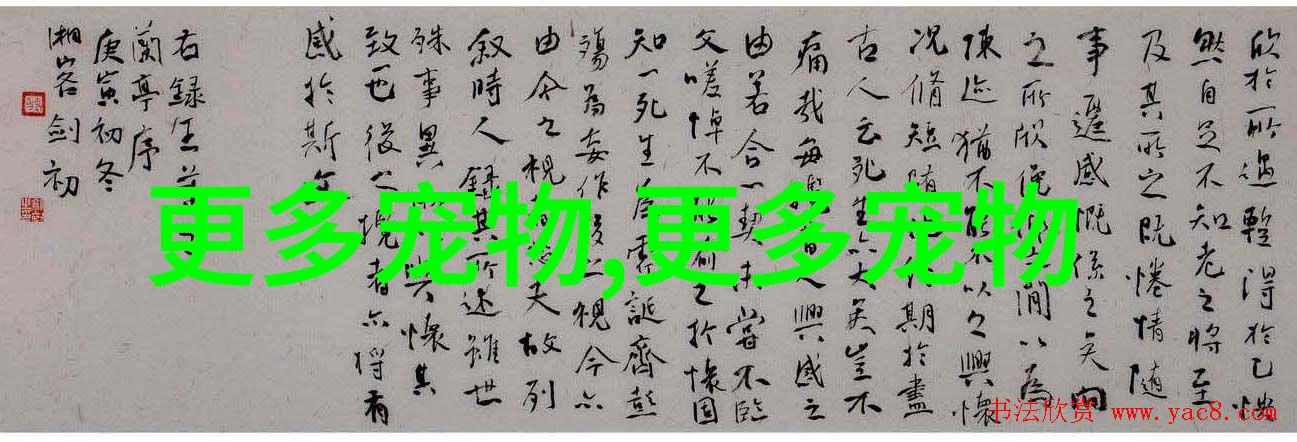 欣於所遇蹔得於己快
然自足不知老之將至
及其所之既惓情隨
事遷感慨係之矣向
之所欣俛仰之間以為
陳迹猶不能不以之興懷
況脩短隨化期於盡
古人云死生亦大矣豈不
痛哉每覽昔人興感之
由若合一契未嘗不臨
文嗟悼不能喻之於懷固
知一死生為虛誕齊彭
殤為妄作後之視今亦
由今之視昔悲夫故列
敘時人錄其所述雖世
殊事異所以興懷其
致一也後之攬者亦將有
感於斯文
右錄王羲之
蘭亭序
庚寅初冬
湘客劍初
更多宠物,更多宠物
书法欣赏 www.yac8.com